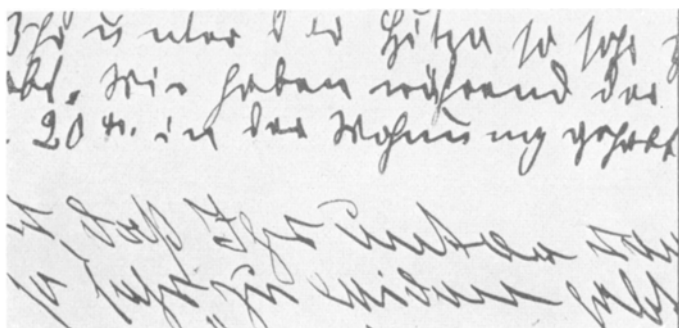 Ihr unter der Hitze so sehr
habt. Wir haben während der
20 in der Wohnung gehabt
daß Ihr unter
so sehr zu leiden habt